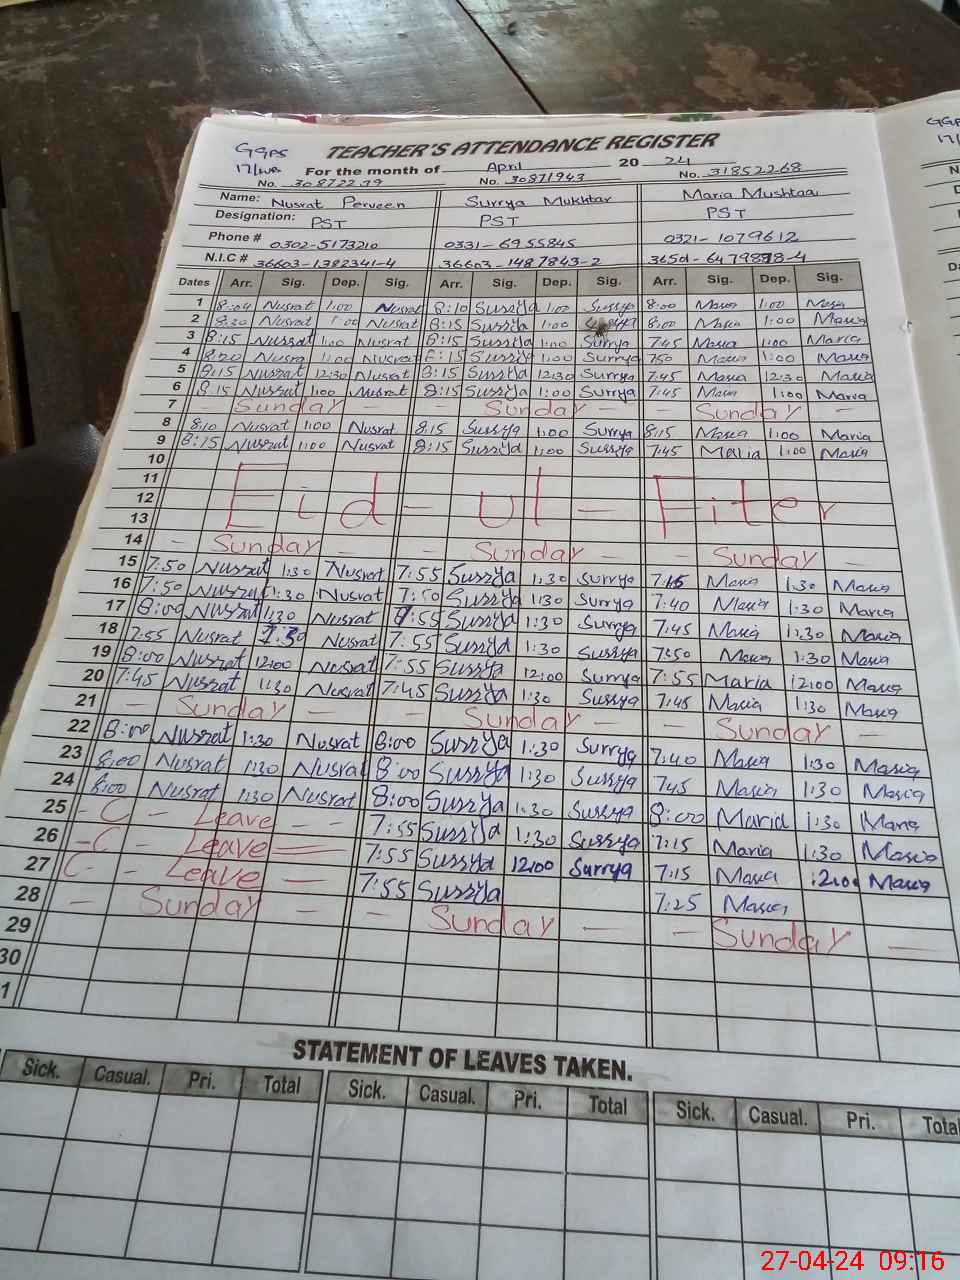 GGPS TEACHER'S ATTENDANCE REGISTER
For the month of April 20 24
No. No. 30871943 No. 31852268
Name: Nusrat Perveen Surrya Mukhtar Maria Mushtaq
Designation: PST PST PST
Phone # 0302-5173210 0331-6955845 0321-1079612
N.I.C # 36603-1382341-4 36603-1487843-2
Dates Arr. Sig. Dep. Sig. Arr. Sig. Dep. Sig. Arr. Sig. Dep. Sig.
1 8:04 Nusrat 1:00 Nusrat 8:10 Surrya 1:00 Surrya 8:00 Maria 1:00 Maria
2 8:30 Nusrat 1:00 Nusrat 8:15 Surrya 1:00 8:00 Maria 1:00 Maria
3 8:15 Nusrat 1:00 Nusrat 8:15 Surrya 1:00 Surrya 7:45 Maria 1:00 Maria
4 8:20 Nusra 1:00 Nusrat 8:15 Surrya 1:00 Surrya 750 Maria 1:00 Maria
5 8:15 Nusrat 12:30 Nusrat 8:15 Surrya 12:30 Surrya 7:45 Maria 12:30 Maria
6 8:15 Nusrat 1:00 Nusrat 8:15 Surrya 1:00 Surrya 7:45 Maria 1:00 Maria
7 - Sunday - - Sunday - - Sunday -
8 8:10 Nusrat 1:00 Nusrat 8:15 Surrya 1:00 Surrya 8:15 Maria 1:00 Maria
9 8:15 Nusrat 1:00 Nusrat 8:15 Surrya 1:00 Surrya 7:45 Maria 1:00 Maria
10
11
12 Eid-ul-Fiter
13
14 - Sunday - - Sunday - - Sunday -
15 7:50 Nusrat 1:30 Nusrat 7:55 Surrya 1:30 Surrya Maria 1:30 Maria
16 7:50 Nusrat 1:30 Nusrat 7:50 Surrya 1:30 Surrya 7:40 Maria 1:30 Maria
17 8:00 Nusrat 1:30 Nusrat 7:55 Surrya 1:30 Surrya 7:45 Maria 1:30 Maria
18 7:55 Nusrat 1:30 Nusrat 7:55 Surrya 1:30 Surrya 7:50 Maria 1:30 Maria
19 8:00 Nusrat 12:00 Nusrat 7:55 Surrya 12:00 Surrya 7:55 Maria 12:00 Maria
20 7:45 Nusrat 1:30 Nusrat 7:45 Surrya 1:30 Surrya 7:45 Maria 1:30 Maria
21 - Sunday - - Sunday - - Sunday -
22 8:00 Nusrat 1:30 Nusrat 8:00 Surrya 1:30 Surrya 7:40 Maria 1:30 Maria
23 8:00 Nusrat 1:30 Nusrat 8:00 Surrya 1:30 Surrya 745 Maria 1:30 Maria
24 8:00 Nusrat 1:30 Nusrat 8:00 Surrya 1:30 Surrya 8:00 Maria 1:30 Maria
25 - C - Leave - - 7:55 Surrya 1:30 Surrya 7:15 Maria 1:30 Maria
26 - C - Leave 7:55 Surrya 12:00 Surrya 7:15 Maria 12:00 Maria
27 C - - Leave - 7:55 Surrya 7:25 Maria
28 - Sunday - - Sunday - - Sunday -
29
30
1
STATEMENT OF LEAVES TAKEN.
Sick. Casual. Pri. Total Sick. Casual. Pri. Total Sick. Casual. Pri. Total
27-04-24 09:16